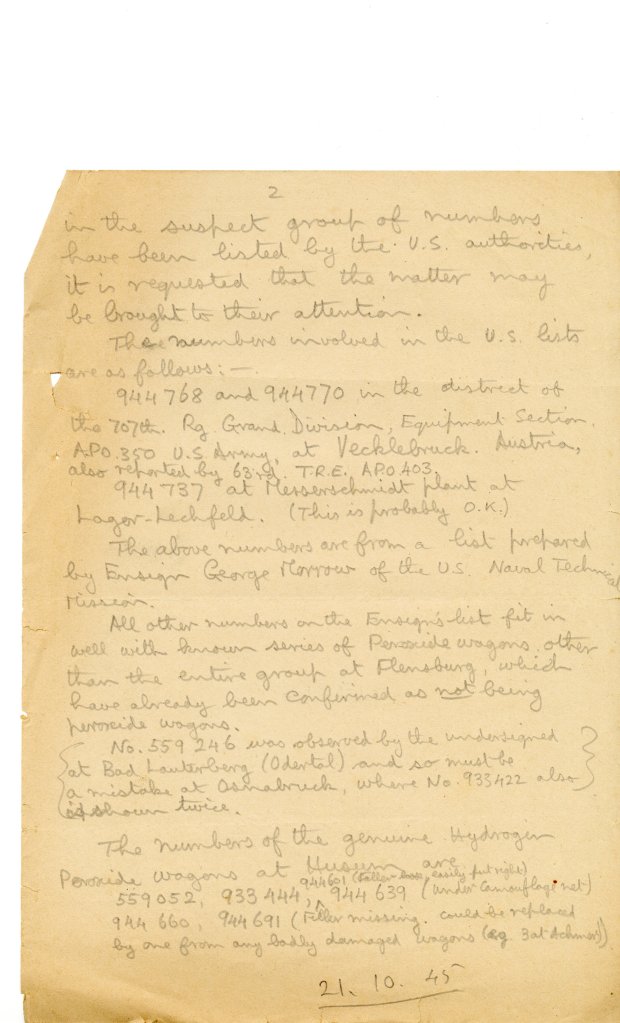 2
in the suspect group of numbers
have been listed by the U.S. authorities,
it is requested that the matter may
be brought to their attention.
The numbers involved in the U.S. lists
are as follows:—
944768 and 944770 in the district of
the 707th. Rg. Grand. Division, Equipment Section,
A.P.O. 350 U.S Army, at Vecklebruck. Austria,
also reported by 63rd. T.R.E. A.P.O 403.
944737 at Messerschmidt plant at
Lager-Lechfeld. (This is probably O.K.)
The above numbers are from a list prepared
by Ensign George Morrow of the U.S. Naval Technical
Mission.
All other numbers on the Ensign's list fit in
well with known series of Peroxide wagons other
than the entire group at Flensburg, which
have already been confirmed as not being
peroxide wagons.
No. 559 246 was observed by the undersigned
at Bad Lauterberg (Odertal) and so must be
a mistake at Osnabruck, where No. 933422 also
is shown twice.
The numbers of the genuine Hydrogen
Peroxide wagons at Husum are
944601 (Filler loose, easily put right)
559052, 933444, 944639 (under camouflage net)
944 660, 944691 (Filler missing. could be replaced
by one from any badly damaged wagons (eg 3 at Achmer)).
21. 10. 45